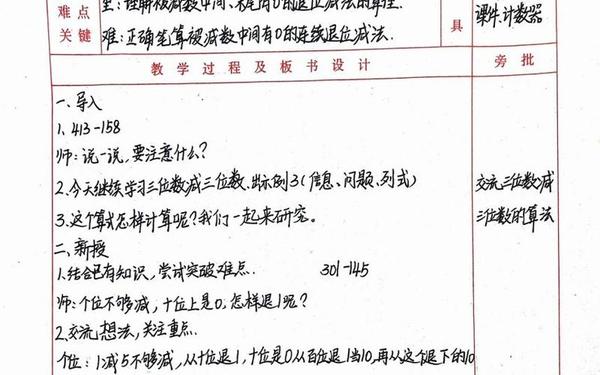 难点 重:理解被减数中间、末尾有0的退位减法的算理. 课件.计数器
关键 难:正确笔算被减数中间有0的连续退位减法. 具
教学过程及板书设计 旁批
一、导入
1、413-158
师:说一说,要注意什么?
2、今天继续学习三位数减三位数、出示例3(信息、问题、列式) 交流三位数减
3、这个算式怎样计算呢?我们一起来研究。 三位数的算法
二、新授
1、结合已有知识,尝试突破难点. 301-145
师:个位不够减,十位上是0,怎样退1呢?
2、交流想法,关注重点.
个位:1减5不够减,从十位退1,十位是0从百位退1当10,再从这个退下的10